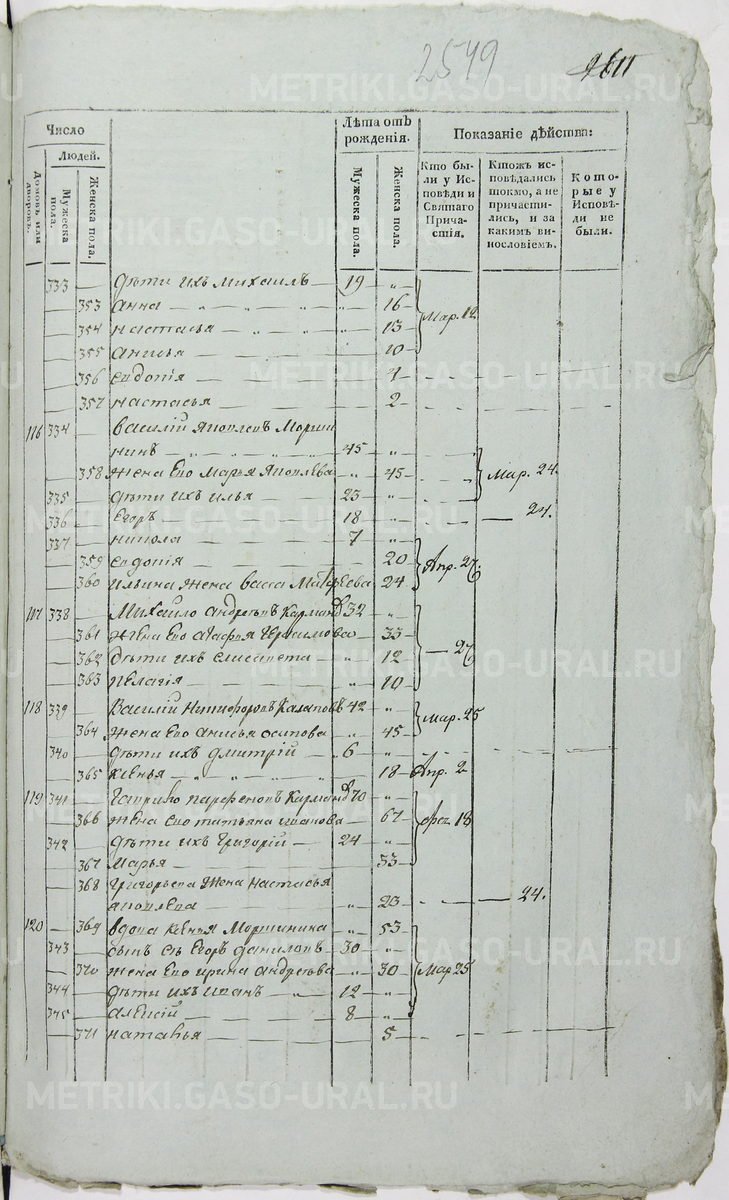 2549
METRIKI.GASO-URAL.RU
Число
Людей.
Домовъ или дворовъ.
Мужеска пола.
Женска пола.
Лѣта отъ рожденія.
Мужеска пола.
Женска пола.
Показаніе дѣйства:
Кто были у Исповѣди и Святаго Причастія.
Ктожъ исповѣдались токмо, а не причастились, и за какимъ винословіемъ.
Которые у Исповѣди не были.
333 — дѣти ихъ Михаилъ — 19 — „
353 Анна — „ — 16 — Мар. 12
354 Настасья — „ — 13
355 Анисья — 10
356 Евдокія — 4
357 Настасья — 2
116 334 Василій Яковлевъ Морши
нинъ — 45 — „
358 Жена Его Марья Яковлева „ 45 — Мар. 24.
335 дѣти ихъ Илья — 23 — „
336 Егоръ — 18 — „ — 24.
337 Никола — 7 — „
359 Евдокія — 20 Апр. 27.
360 Ильина Жена Васса 24
117 338 Михайло Андреевъ 32 — „
361 Жена Его Агафья Герасимова 33 — 27
362 Дѣти ихъ Елисавета — „ 12
363 Пелагія — „ 10
118 339 Василій Никифоровъ Казаковъ 42 — „ Мар. 25
364 Жена Его Анисья Осипова „ 45
340 дѣти ихъ Дмитрій — 6 — „
365 Ксенья — „ 18 — Апр. 2
119 341 Гаврило Парфеновъ 70 — „
366 Жена Его Татьяна Иванова — 67 18
342 дѣти ихъ Григорій — 24 — „
367 Марья — 33
368 Григорьева Жена Настасья
Яковлева — „ 23 — 24.
120 369 вдова Ксенья Моршинина — „ 53
343 сынъ Ея Егоръ Даниловъ — 30 — „
370 Жена Его Ирина Андреева — „ 30 Мар 25
344 дѣти ихъ Иванъ — „ 12 — „
345 Алексій — 8 — „
371 Наталья — 5
METRIKI.GASO-URAL.RU